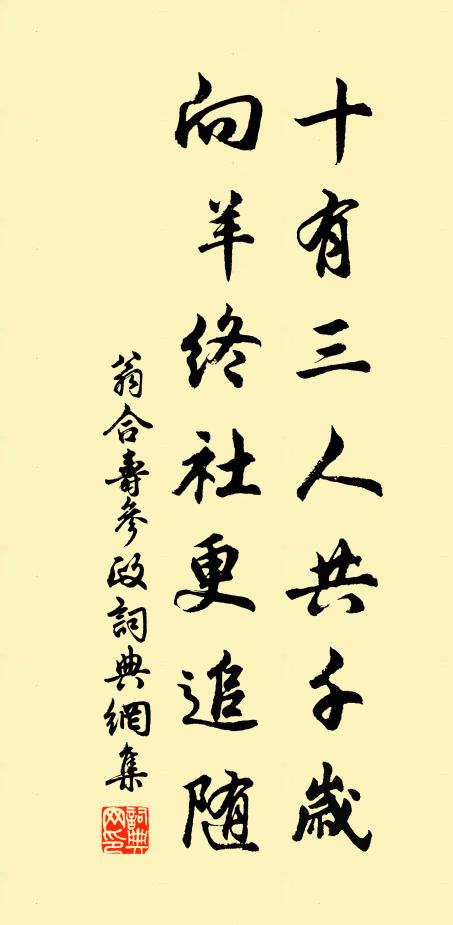 十有三人共千歲
向羊終社更追随
翁合壽參政詞典網集
詞典網印